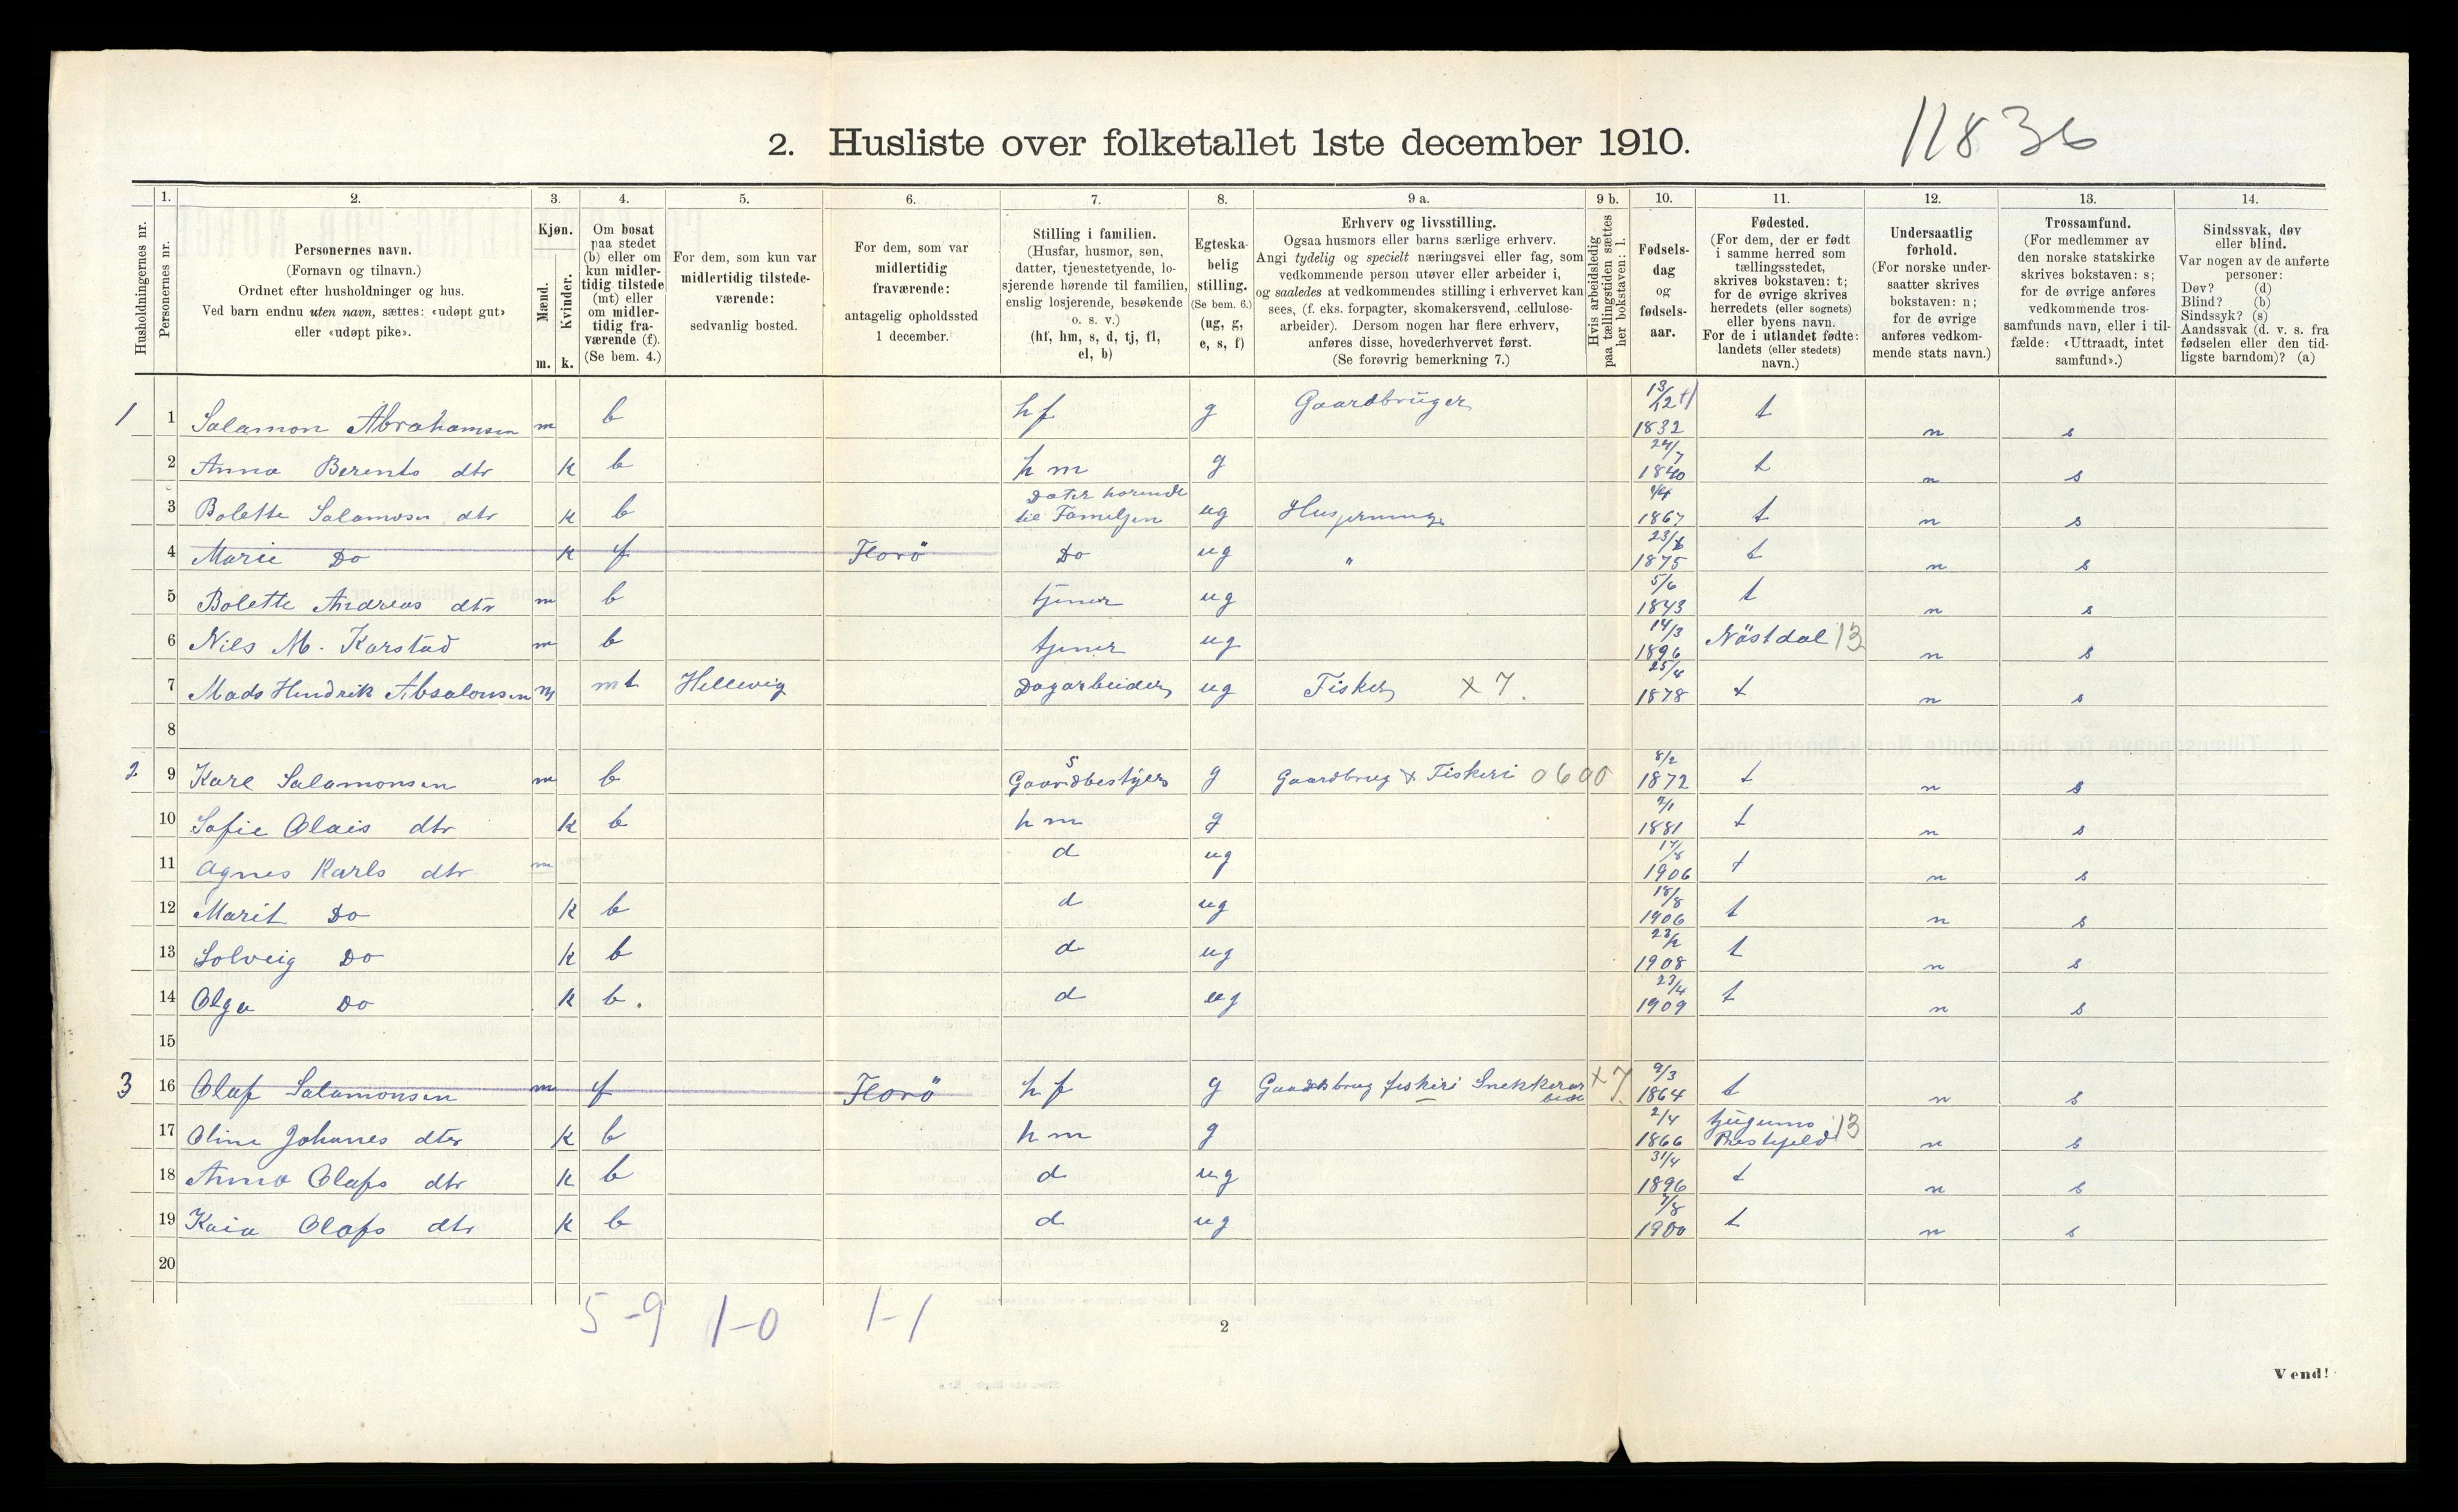 2. Husliste over folketallet 1ste december 1910.
11836
1. 2. 3. 4. 5. 6. 7. 8. 9 a. 9 b. 10. 11. 12. 13. 14.
Husholdningernes nr.
Personernes nr.
Personernes navn.
(Fornavn og tilnavn.)
Ordnet efter husholdninger og hus.
Ved barn endnu uten navn, sættes: «udøpt gut»
eller «udøpt pike».
Kjøn.
Mænd.
Kvinder.
m. k.
Om bosat
paa stedet
(b) eller om
kun midler-
tidig tilstede
(mt) eller
om midler-
tidig fra-
værende (f).
(Se bem. 4.)
For dem, som kun var
midlertidig tilstede-
værende:
sedvanlig bosted.
For dem, som var
midlertidig
fraværende:
antagelig opholdssted
1 december.
Stilling i familien.
(Husfar, husmor, søn,
datter, tjenestetyende, lo-
sjerende hørende til familien,
enslig losjerende, besøkende
o. s. v.)
(hf, hm, s, d, tj, fl,
el, b)
Egteska-
belig
stilling.
(Se bem. 6.)
(ug, g,
e, s, f)
Erhverv og livsstilling.
Ogsaa husmors eller barns særlige erhverv.
Angi tydelig og specielt næringsvei eller fag, som
vedkommende person utøver eller arbeider i,
og saaledes at vedkommendes stilling i erhvervet kan
sees, (f. eks. forpagter, skomakersvend, cellulose-
arbeider). Dersom nogen har flere erhverv,
anføres disse, hovederhvervet først.
(Se forøvrig bemerkning 7.)
Hvis arbeidsledig
paa tællingstiden sættes
her bokstaven: l.
Fødsels-
dag
og
fødsels-
aar.
Fødested.
(For dem, der er født
i samme herred som
tællingsstedet,
skrives bokstaven: t;
for de øvrige skrives
herredets (eller sognets)
eller byens navn.
For de i utlandet fødte:
landets (eller stedets)
navn.)
Undersaatlig
forhold.
(For norske under-
saatter skrives
bokstaven: n;
for de øvrige
anføres vedkom-
mende stats navn.)
Trossamfund.
(For medlemmer av
den norske statskirke
skrives bokstaven: s;
for de øvrige anføres
vedkommende tros-
samfunds navn, eller i til-
fælde: «Uttraadt, intet
samfund».)
Sindssvak, døv
eller blind.
Var nogen av de anførte
personer:
Døv? (d)
Blind? (b)
Sindssyk? (s)
Aandssvak (d. v. s. fra
fødselen eller den tid-
ligste barndom)? (a)
1 1 Salamon Abrahamsen m b hf g Gaardbruger 13/12 1832 t n s
2 Anna Berents dtr k b hm g 24/7 1840 t n s
3 Bolette Salamosn dtr k b Dater hørende til Familjen ug Husgerning 1867 t n s
4 Marie Do k f Florö Do ug " 23/6 1875 t n s
5 Bolette Andreas dtr m b tjener ug 5/6 1843 t n s
6 Nils M. Karstad m b tjener ug 14/3 1896 Nöstdal 13 n s
7 Mads Hendrik Absalonsen m mt Hellevig Dagarbeider ug Fisker x 7. 25/4 1878 t n s
8
2 9 Karl Salamonsen m b s Gaardbestyer g Gaardbrug & Fiskeri 0600 8/2 1872 t n s
10 Sofie Olais dtr k b hm g 7/1 1881 t n s
11 Agnes Karls dtr m d ug 17/8 1906 t n s
12 Marit Do k b d ug 18/8 1906 t n s
13 Solveig Do k b d ug 23/2 1908 t n s
14 Olga Do k b. d ug 23/4 1909 t n s
15
3 16 Olaf Salamonsen m f Florö hf g Gaardsbrug fiskeri Snekkerar beide x7. 9/3 1864 t n s
17 Oline Johanes dter k b hm g 2/4 1866 13 n s
18 Anna Olafs dtr k b d ug 31/4 1896 t n s
19 Kaia Olafs dtr k b d ug 7/8 1900 t n s
20
5-9 1-0 1-1
2
Vend!